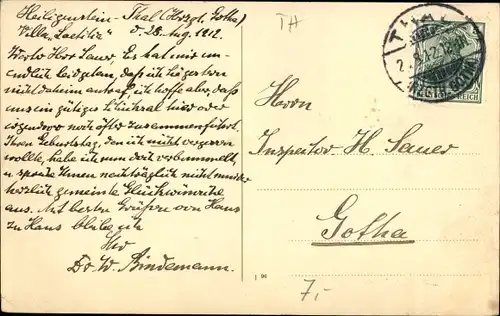 Heiligenstein-Thal (Herzgt. Gotha)
Villa „Laetitia“ d. 28. Aug. 1912.
Werter Herr Sauer. Es hat mir un-
endlich leid getan, daß ich Sie gestern
nicht daheim antraf, ich hoffe aber, daß
uns ein gütiges Schicksal hier oder
irgendwo noch öfter zusammenführt.
Ihren Geburtstag, den ich nicht vergessen
wollte, habe ich nun doch verbummelt
u. spreche Ihnen nachträglich nicht minder
herzlich gemeinte Glückwünsche
aus. Mit besten Grüßen von Haus
zu Haus bleibe ich
Ihr
Dr. W. Bindemann.
TH
REICH
Herrn
Inspektor H. Sauer
Gotha
7,-